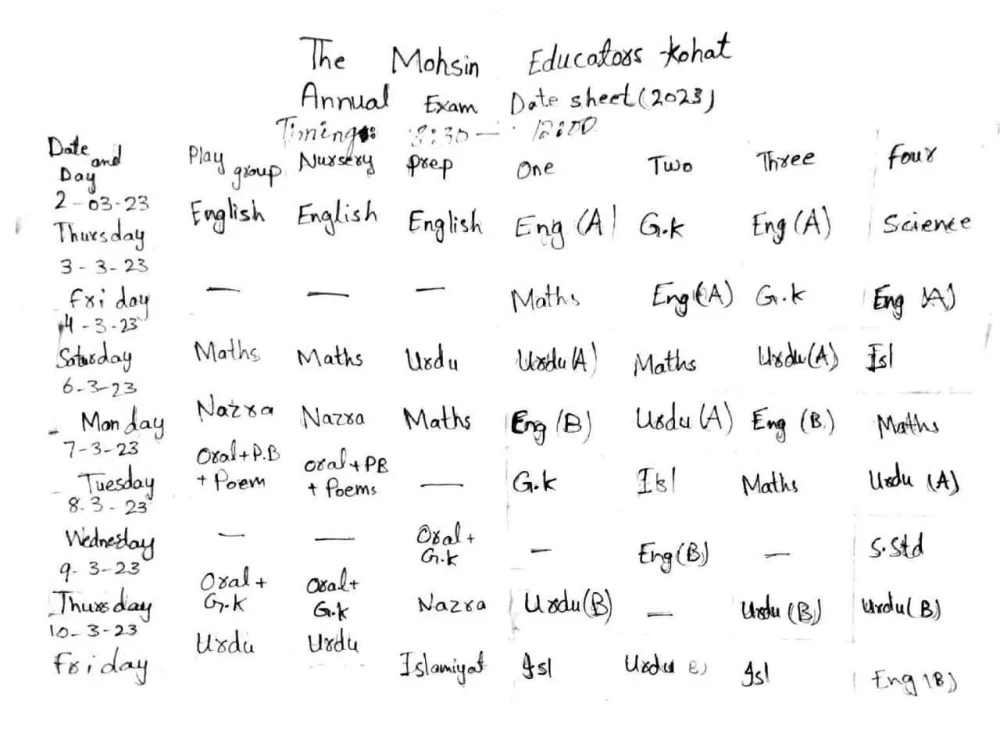 The Mohsin Educators Kohat
Annual Exam Date sheet (2023)
Timing: 8:30 — 12:00
Date and Day Play group Nursery prep One Two Three four
2-03-23
Thursday English English English Eng (A) G.k Eng (A) Science
3-3-23
Friday — — — Maths Eng (A) G.k Eng (A)
4-3-23
Saturday Maths Maths Urdu Urdu (A) Maths Urdu (A) Isl
6-3-23
Monday Nazra Nazra Maths Eng (B) Urdu (A) Eng (B) Maths
7-3-23
Tuesday Oral+P.B + Poem oral+PB + Poems — G.k Isl Maths Urdu (A)
8.3-23
Wednesday — — Oral + G.k — Eng (B) — S.Std
9-3-23
Thursday Oral + G.k Oral+ G.k Nazra Urdu (B) — Urdu (B) Urdu (B)
10-3-23
Friday Urdu Urdu Islamiyat Isl Urdu B) Isl Eng (B)